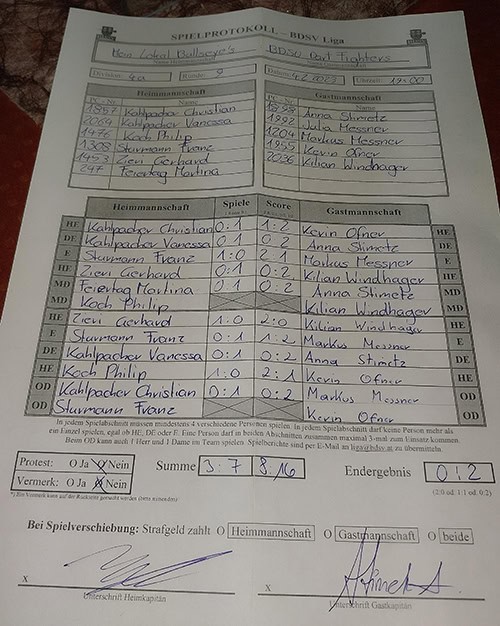 SPIELPROTOKOLL – BDSV Liga
Mein Lokal Bullseye's BDSV Dart Fighters
Division: 4a Runde: 9 Datum: 2023 Uhrzeit: 19:00
Heimmannschaft Gastmannschaft
Name Name
1857 Kahlpacher Christian
2089 Kahlpacher Vanessa 1992 Julia Messner
1476 Koch Philip 1204 Markus Messner
1308 Sturmann Franz 1955 Kevin Ofner
1453 Zieri Gerhard 2036 Kilian Windhager
247 Feiertag Martina
Heimmannschaft Spiele Score Gastmannschaft
HE Kahlpacher Christian 0:1 1:2 Kevin Ofner HE
DE Kahlpacher Vanessa 0:1 0:2 Anna Stimetz DE
E Sturmann Franz 1:0 2:1 Markus Messner E
HE Zieri Gerhard 0:1 0:2 Kilian Windhager HE
MD Feiertag Martina 0:1 0:2 Anna Stimetz MD
MD Koch Philip Kilian Windhager MD
HE Zieri Gerhard 1:0 2:0 Kilian Windhager HE
E Sturmann Franz 0:1 1:2 Markus Messner E
DE Kahlpacher Vanessa 0:1 0:2 Anna Stimetz DE
HE Koch Philip 1:0 2:1 Kevin Ofner HE
OD Kahlpacher Christian 0:1 0:2 Markus Messner OD
OD Sturmann Franz Kevin Ofner OD
In jedem Spielabschnitt müssen mindestens 4 verschiedene Personen spielen. In jedem Spielabschnitt darf keine Person mehr als
ein Einzel spielen, egal ob HE, DE oder E. Eine Person darf in beiden Abschnitten zusammen maximal 3-mal zum Einsatz kommen.
Beim OD kann auch 1 Herr und 1 Dame im Team spielen. Spielberichte sind per E-Mail an liga@bdsv.at zu übermitteln
Protest: O Ja O Nein Summe 3:7 8:16 Endergebnis 0:2
Vermerk: O Ja O Nein (2:0 od. 1:1 od. 0:2)
Bei Spielverschiebung: Strafgeld zahlt O Heimmannschaft O Gastmannschaft O beide
X X
Unterschrift Heimkapitän Unterschrift Gastkapitän